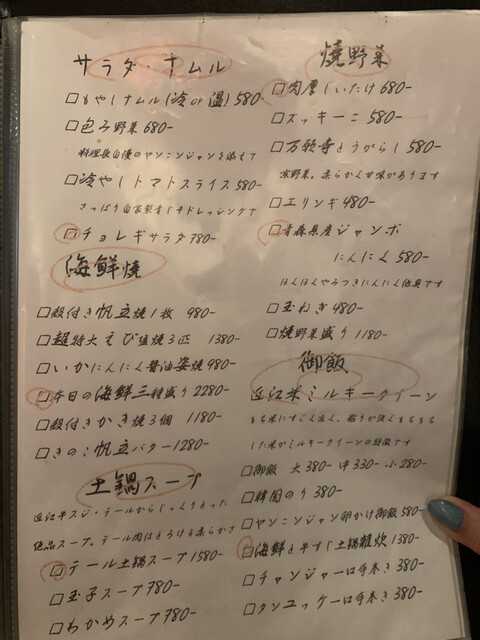 サラダ・ナムル
□もやしナムル(冷or温) 580-
□包み野菜 680-
料理長自慢のヤンニンジャンを添えて
□冷やしトマトスライス 580-
さっぱり自家製青じそドレッシングで
□チョレギサラダ 780-
海鮮焼
□殻付き帆立焼1枚 980-
□超特大えび塩焼3匹 1380-
□いかにんにく醤油姿焼 980-
□本日の海鮮三種盛り 2280-
□殻付きかき焼3個 1180-
□きのこ帆立バター 1280-
土鍋スープ
近江牛スジ・テールからじっくりとった
絶品スープ。テール肉はとろける柔らかさ
□テール土鍋スープ 1580-
□玉子スープ 780-
□わかめスープ 780-
焼野菜
□肉厚しいたけ 680-
□ズッキーニ 580-
□万願寺とうがらし 580-
京野菜。柔らかく甘味があります
□エリンギ 480-
□青森県産ジャンボ
にんにく 580-
ほくほくやみつきにんにく
□玉ねぎ 480-
□焼野菜盛り 1180-
御飯
近江米ミルキークイーン
もち米にすごく近く、粘りが強くもちもち
した米がミルキークイーンの特徴です
□御飯 大380- 中330- 小280-
□韓国のり 380-
□ヤンニンジャン卵かけ御飯 580-
□海鮮と牛すじ土鍋雑炊 1380-
□チャンジャ一口手巻き 380-
□タンユッケ一口手巻き 380-